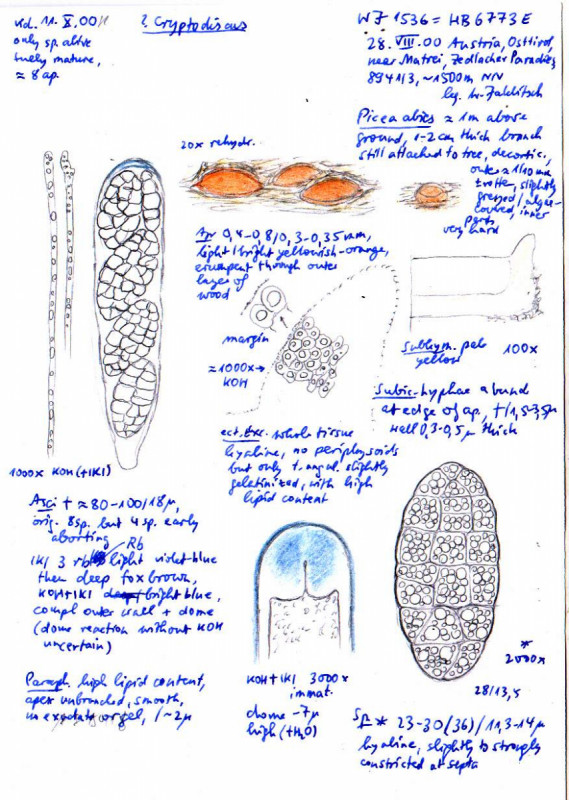 vid. 11. X. 00
only sp. alive
fully mature,
≈ 8 ap.
? Cryptodiscus
WJ 1536 = HB 6773 E
28. VIII. 00 Austria, Osttirol,
near Matrei, Zedlacher Paradies,
8941/3, ~1500m NN
leg. W. Jaklitsch
Picea abies ≈ 1m above
ground, 1-2 cm thick branch
still attached to tree, decortic.,
outer ≈ 1/10 mm
± rotten, slightly
greyed / algae-
covered, inner
parts
very hard
20x rehydr.
Ap 0,4-0,8/0,3-0,35 mm,
light/bright yellowish-orange,
erumpent through outer
layer of
wood
margin
≈1000x
KOH
Subhym. pale
yellow
100x
Subic.-hyphae abund
at edge of ap, †/1,5-3,5µ
wall 0,3-0,5 µ thick
ect. exc. whole tissue
hyaline, no periphysoids
but only t. angul. slightly
gelatinized, with high
lipid content
1000x KOH (+IKI)
Asci † ≈ 80-100/18µ,
orig. 8sp. but 4 sp. early
aborting
Rb
IKI 3 rb light violet-blue
then deep fox brown,
KOH+IKI bright blue,
compl outer wall + dome
(dome reaction without KOH
uncertain)
Paraph. high lipid content,
apex unbranched, smooth,
no exudate or gel, /~2µ
KOH+IKI 3000x
immat.
dome ~7µ
high (†H2O)
*
2000x
28/13,5
Sp * 23-30(36)/11,3-14µ
hyaline, slightly to strongly
constricted at septa